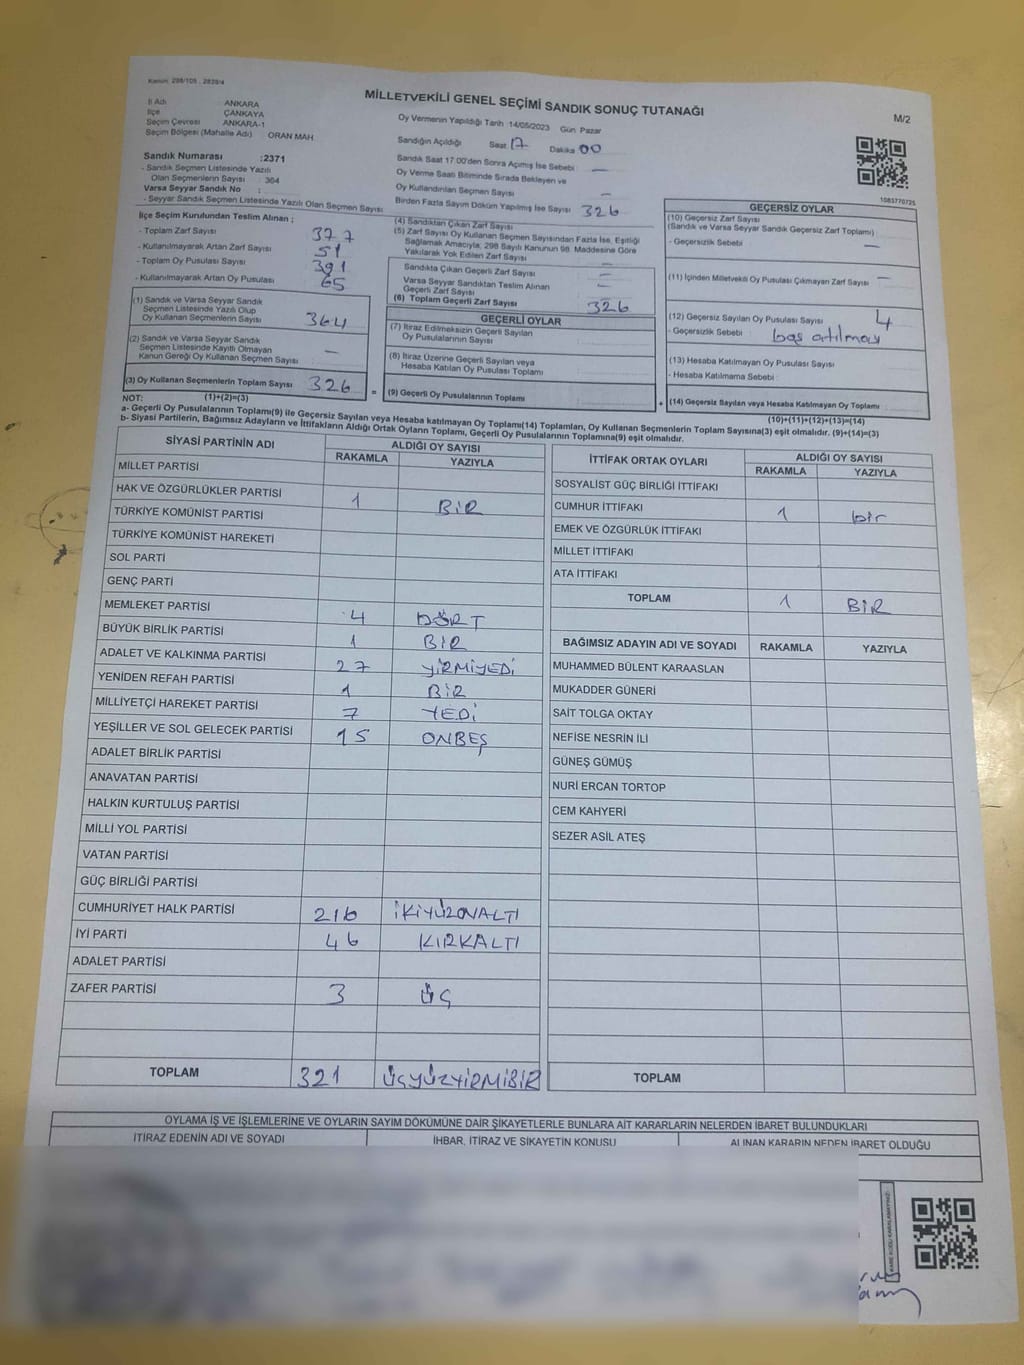 Kanun: 298/105 - 2839/4
MİLLETVEKİLİ GENEL SEÇİMİ SANDIK SONUÇ TUTANAĞI
M/2
İl Adı : ANKARA
İlçe : ÇANKAYA
Seçim Çevresi : ANKARA-1
Seçim Bölgesi (Mahalle Adı) ORAN MAH
Sandık Numarası :2371
- Sandık Seçmen Listesinde Yazılı
Olan Seçmenlerin Sayısı : 364
Varsa Seyyar Sandık No :
- Seyyar Sandık Seçmen Listesinde Yazılı Olan Seçmen Sayısı
Oy Vermenin Yapıldığı Tarih :14/05/2023 Gün Pazar
Sandığın Açıldığı Saat 17 Dakika 00
Sandık Saat 17:00'den Sonra Açılmış İse Sebebi : —
Oy Verme Saati Bitiminde Sırada Bekleyen ve
Oy Kullandırılan Seçmen Sayısı —
Birden Fazla Sayım Döküm Yapılmış İse Sayısı 326
1083770725
İlçe Seçim Kurulundan Teslim Alınan :
- Toplam Zarf Sayısı 377
- Kullanılmayarak Artan Zarf Sayısı 51
- Toplam Oy Pusulası Sayısı 391
- Kullanılmayarak Artan Oy Pusulası 65
(1) Sandık ve Varsa Seyyar Sandık
Seçmen Listesinde Yazılı Olup
Oy Kullanan Seçmenlerin Sayısı 364
(2) Sandık ve Varsa Seyyar Sandık
Seçmen Listesinde Kayıtlı Olmayan
Kanun Gereği Oy Kullanan Seçmen Sayısı —
(3) Oy Kullanan Seçmenlerin Toplam Sayısı 326 =
(1)+(2)=(3)
(4) Sandıktan Çıkan Zarf Sayısı —
(5) Zarf Sayısı Oy Kullanan Seçmen Sayısından Fazla İse, Eşitliği
Sağlamak Amacıyla; 298 Sayılı Kanunun 98. Maddesine Göre
Yakılarak Yok Edilen Zarf Sayısı —
Sandıkta Çıkan Geçerli Zarf Sayısı —
Varsa Seyyar Sandıktan Teslim Alınan
Geçerli Zarf Sayısı —
(6) Toplam Geçerli Zarf Sayısı 326
GEÇERLİ OYLAR
(7) İtiraz Edilmeksizin Geçerli Sayılan
Oy Pusulalarının Sayısı
(8) İtiraz Üzerine Geçerli Sayılan veya
Hesaba Katılan Oy Pusulası Toplamı
(9) Geçerli Oy Pusulalarının Toplamı +
GEÇERSİZ OYLAR
(10) Geçersiz Zarf Sayısı
(Sandık ve Varsa Seyyar Sandık Geçersiz Zarf Toplamı)
- Geçersizlik Sebebi —
(11) İçinden Milletvekili Oy Pusulası Çıkmayan Zarf Sayısı —
(12) Geçersiz Sayılan Oy Pusulası Sayısı 4
- Geçersizlik Sebebi : boş atılmay
(13) Hesaba Katılmayan Oy Pusulası Sayısı
- Hesaba Katılmama Sebebi
(14) Geçersiz Sayılan veya Hesaba Katılmayan Oy Toplamı
(10)+(11)+(12)+(13)=(14)
NOT:
a- Geçerli Oy Pusulalarının Toplamı(9) ile Geçersiz Sayılan veya Hesaba katılmayan Oy Toplamı(14) Toplamları, Oy Kullanan Seçmenlerin Toplam Sayısına(3) eşit olmalıdır. (9)+(14)=(3)
b- Siyasi Partilerin, Bağımsız Adayların ve İttifakların Aldığı Ortak Oyların Toplamı, Geçerli Oy Pusulalarının Toplamına(9) eşit olmalıdır.
SİYASİ PARTİNİN ADI ALDIĞI OY SAYISI
RAKAMLA YAZIYLA
MİLLET PARTİSİ
HAK VE ÖZGÜRLÜKLER PARTİSİ 1 BİR
TÜRKİYE KOMÜNİST PARTİSİ
TÜRKİYE KOMÜNİST HAREKETİ
SOL PARTİ
GENÇ PARTİ
MEMLEKET PARTİSİ 4 DÖRT
BÜYÜK BİRLİK PARTİSİ 1 BİR
ADALET VE KALKINMA PARTİSİ 27 YİRMİYEDİ
YENİDEN REFAH PARTİSİ 1 BİR
MİLLİYETÇİ HAREKET PARTİSİ 7 YEDİ
YEŞİLLER VE SOL GELECEK PARTİSİ 15 ONBEŞ
ADALET BİRLİK PARTİSİ
ANAVATAN PARTİSİ
HALKIN KURTULUŞ PARTİSİ
MİLLİ YOL PARTİSİ
VATAN PARTİSİ
GÜÇ BİRLİĞİ PARTİSİ
CUMHURİYET HALK PARTİSİ 216 İKİYÜZONALTI
İYİ PARTİ 46 KIRKALTI
ADALET PARTİSİ
ZAFER PARTİSİ 3 ÜÇ
TOPLAM 321 ÜÇYÜZYİRMİBİR
İTTİFAK ORTAK OYLARI ALDIĞI OY SAYISI
RAKAMLA YAZIYLA
SOSYALİST GÜÇ BİRLİĞİ İTTİFAKI
CUMHUR İTTİFAKI 1 bir
EMEK VE ÖZGÜRLÜK İTTİFAKI
MİLLET İTTİFAKI
ATA İTTİFAKI
TOPLAM 1 BİR
BAĞIMSIZ ADAYIN ADI VE SOYADI RAKAMLA YAZIYLA
MUHAMMED BÜLENT KARAASLAN
MUKADDER GÜNERİ
SAİT TOLGA OKTAY
NEFİSE NESRİN İLİ
GÜNEŞ GÜMÜŞ
NURİ ERCAN TORTOP
CEM KAHYERİ
SEZER ASİL ATEŞ
TOPLAM
OYLAMA İŞ VE İŞLEMLERİNE VE OYLARIN SAYIM DÖKÜMÜNE DAİR ŞİKAYETLERLE BUNLARA AİT KARARLARIN NELERDEN İBARET BULUNDUKLARI
İTİRAZ EDENİN ADI VE SOYADI İHBAR, İTİRAZ VE ŞİKAYETİN KONUSU ALINAN KARARIN NEDEN İBARET OLDUĞU
KARE KODU KARALAMAYINIZ